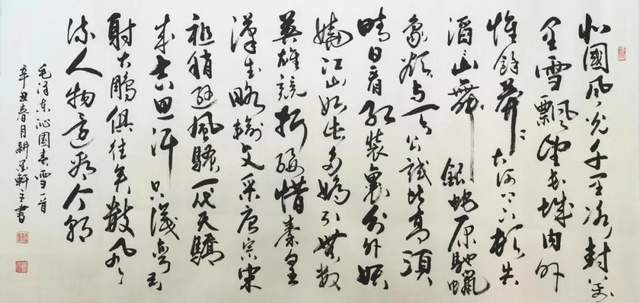 北國風光千里冰封萬
里雪飄望長城內外
惟餘莽莽大河上下頓失
滔滔山舞銀蛇原馳蠟
象欲与天公試比高須
晴日看紅裝素裹分外妖
嬈江山如此多嬌引無數
英雄競折腰惜秦皇
漢武略輸文采唐宗宋
祖稍遜風騷一代天驕
成吉思汗只識彎弓
射大鵰俱往矣數風
流人物還看今朝
毛澤東沁園春雪一首
辛丑春月耕墨軒主書